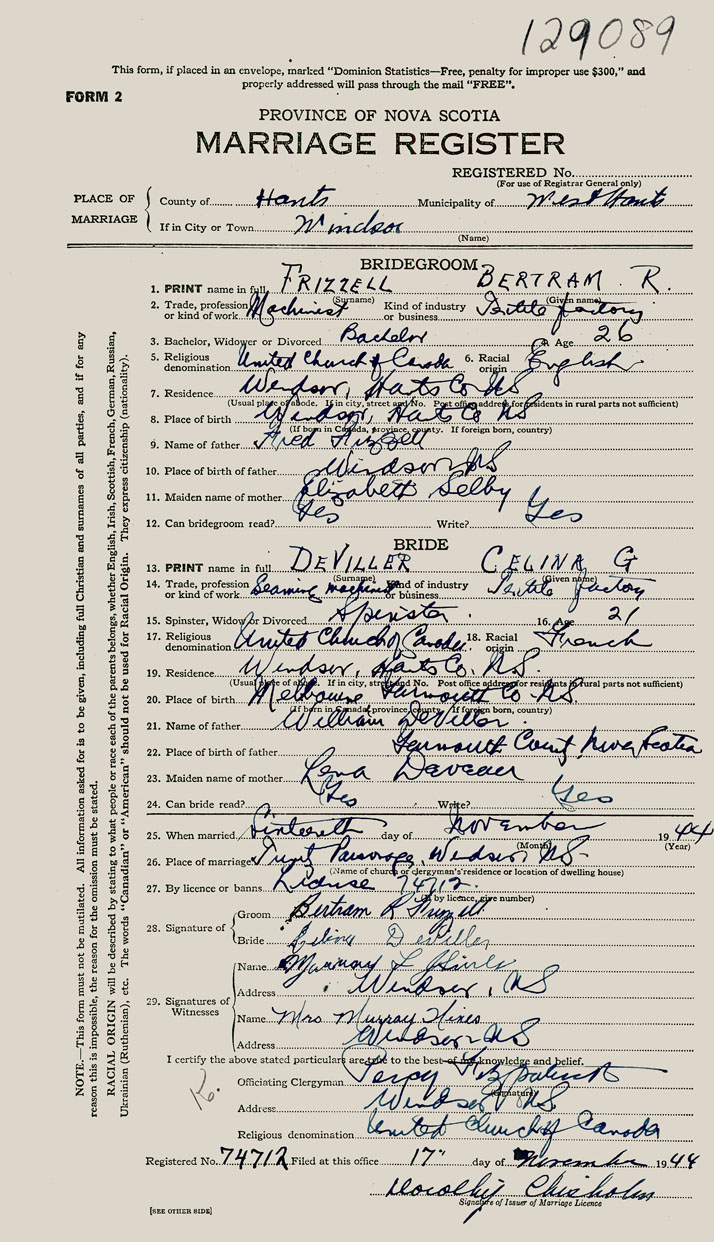 129089
This form, if placed in an envelope, marked “Dominion Statistics—Free, penalty for improper use $300,” and
properly addressed will pass through the mail “FREE”.
FORM 2
PROVINCE OF NOVA SCOTIA
MARRIAGE REGISTER
REGISTERED No.
(For use of Registrar General only)
PLACE OF MARRIAGE
County of Hants Municipality of West Hants
If in City or Town Windsor
(Name)
BRIDEGROOM
1. PRINT name in full FRIZZELL BERTRAM R.
(Surname) (Given name)
2. Trade, profession or kind of work Machinist Kind of industry or business Textile factory
3. Bachelor, Widower or Divorced Bachelor 4. Age 26
5. Religious denomination United Church of Canada 6. Racial origin English
7. Residence Windsor, Hants Co. NS
(Usual place of abode. If in city, street and No. Post office address for residents in rural parts not sufficient)
8. Place of birth Windsor, Hants Co NS
(If born in Canada, province, county. If foreign born, country)
9. Name of father Fred Frizzell
10. Place of birth of father Windsor NS
11. Maiden name of mother Elizabeth Selby
12. Can bridegroom read? Yes Write? Yes
BRIDE
13. PRINT name in full DEVILLER CELINA G
(Surname) (Given name)
14. Trade, profession or kind of work Seaming machinist Kind of industry or business Textile factory
15. Spinster, Widow or Divorced Spinster 16. Age 21
17. Religious denomination United Church of Canada 18. Racial origin French
19. Residence Windsor, Hants Co. N.S.
(Usual place of abode. If in city, street and No. Post office address for residents in rural parts not sufficient)
20. Place of birth Melbourne Yarmouth Co NS.
(If born in Canada, province, county. If foreign born, country)
21. Name of father William DeViller
22. Place of birth of father Yarmouth County Nova Scotia
23. Maiden name of mother Lena Deveau
24. Can bride read? Yes Write? Yes
25. When married day of November 1944
(Month) (Year)
26. Place of marriage Parsonage, Windsor NS
(Name of church or clergyman's residence or location of dwelling house)
27. By licence or banns License 74712.
(If by licence, give number)
28. Signature of
Groom Bertram R Frizzell
Bride Celina DeViller
29. Signatures of Witnesses
Name Murray
Address Windsor, NS
Name Mrs Murray
Address Windsor NS
I certify the above stated particulars are true to the best of my knowledge and belief.
Officiating Clergyman Percy Fitzpatrick
(Signature)
Address Windsor NS
Religious denomination United Church of Canada
Registered No. 74712 Filed at this office 17" day of November 1944
Dorothy Chisholm
Signature of Issuer of Marriage Licence
[SEE OTHER SIDE]
NOTE.—This form must not be mutilated. All information asked for is to be given, including full Christian and surnames of all parties, and if for any
reason this is impossible, the reason for the omission must be stated.
RACIAL ORIGIN will be described by stating to what people or race each of the parents belongs, whether English, Irish, Scottish, French, German, Russian,
Ukrainian (Ruthenian), etc. The words “Canadian” or “American” should not be used for Racial Origin. They express citizenship (nationality).